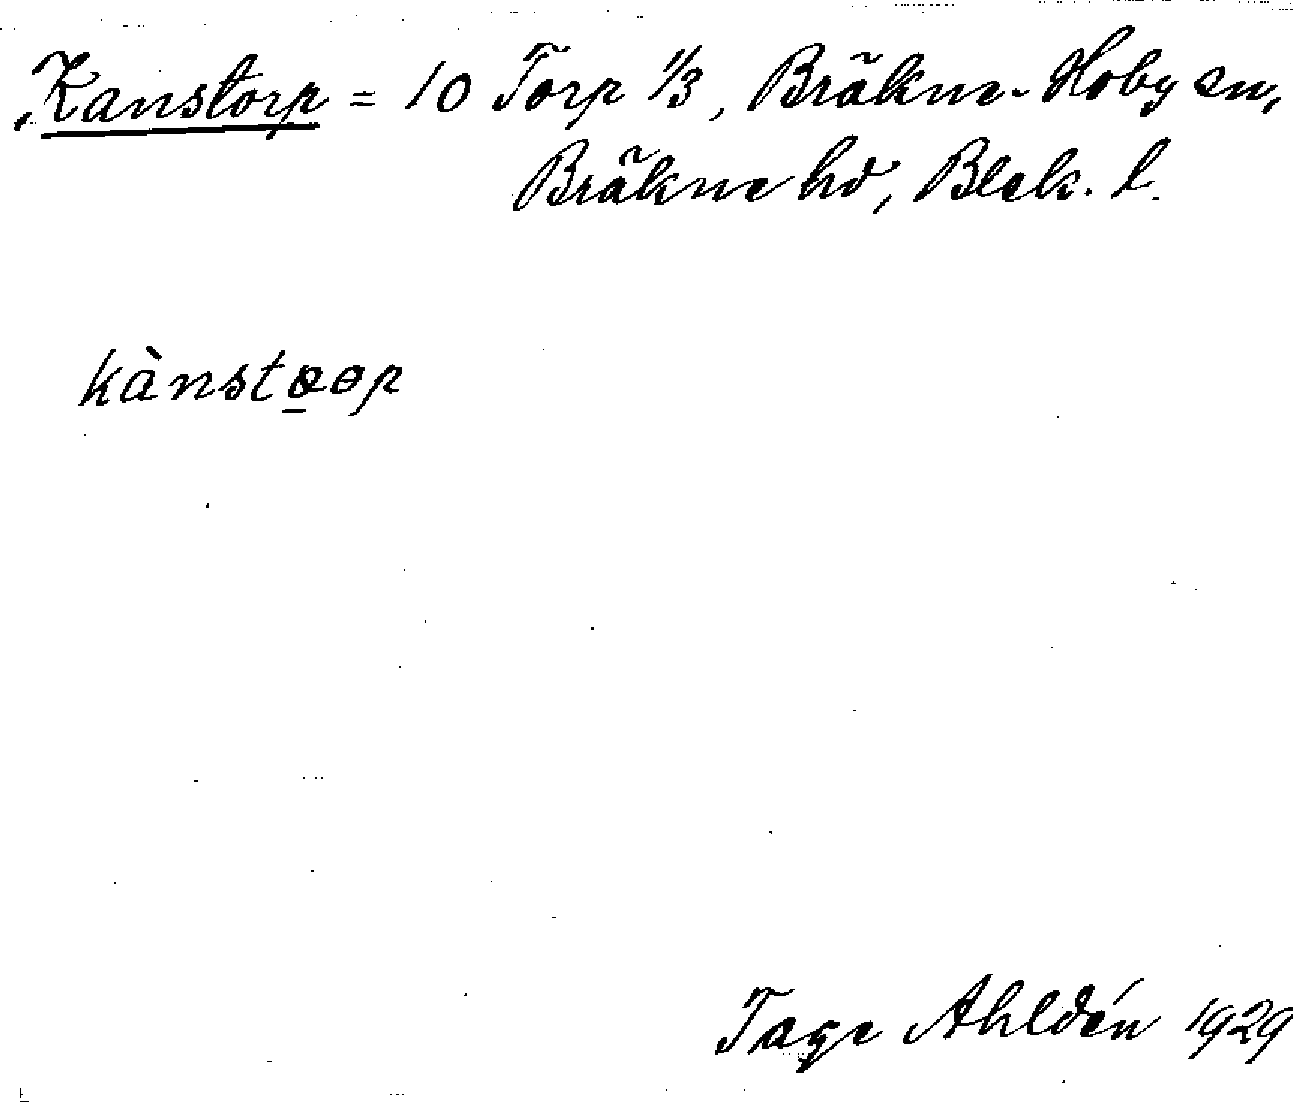 Kanstorp = 10 Torp 1/3, Bräkne-Hoby sn,
Bräkne hd, Blek. l.
Tage Ahldén 1929